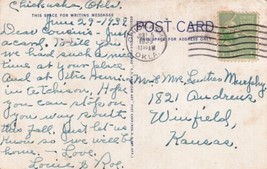 Chickasha, Okla.
THIS SPACE FOR WRITING MESSAGES
POST CARD
THIS SPACE FOR ADDRESS ONLY
June 29 - 1938
Dear Cousins. Just
a card. To tell you
we had such a nice
time at your place.
And at
in Atchison. Hope
you can stop on
you way south
this fall. Just let us
know so we will be
home. Love.
Louie & Roe.
OKLA.
Mr & Mrs Luther Murphy
1821 Andrews
Winfield,
Kansas.